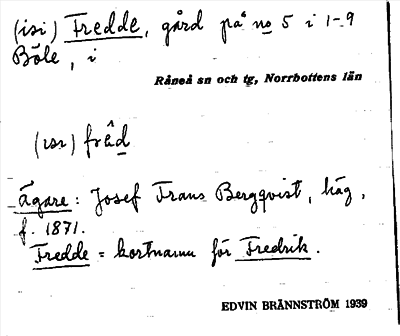 (isi) Fredde, gård på no 5 i 1-9
Böle, i
Råneå sn och tg, Norrbottens län
(isi) frêd
Ägare: Josef Frans Bergqvist, häg,
f. 1871.
Fredde = kortnamn för Fredrik.
EDVIN BRÄNNSTRÖM 1939